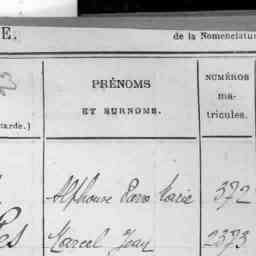 E.
de la Nomenclatur
PRÉNOMS
ET SURNOMS.
NUMÉROS
ma-
tricules.
tarde.)
Alphonse Marie 372
es Marcel Jean 2373